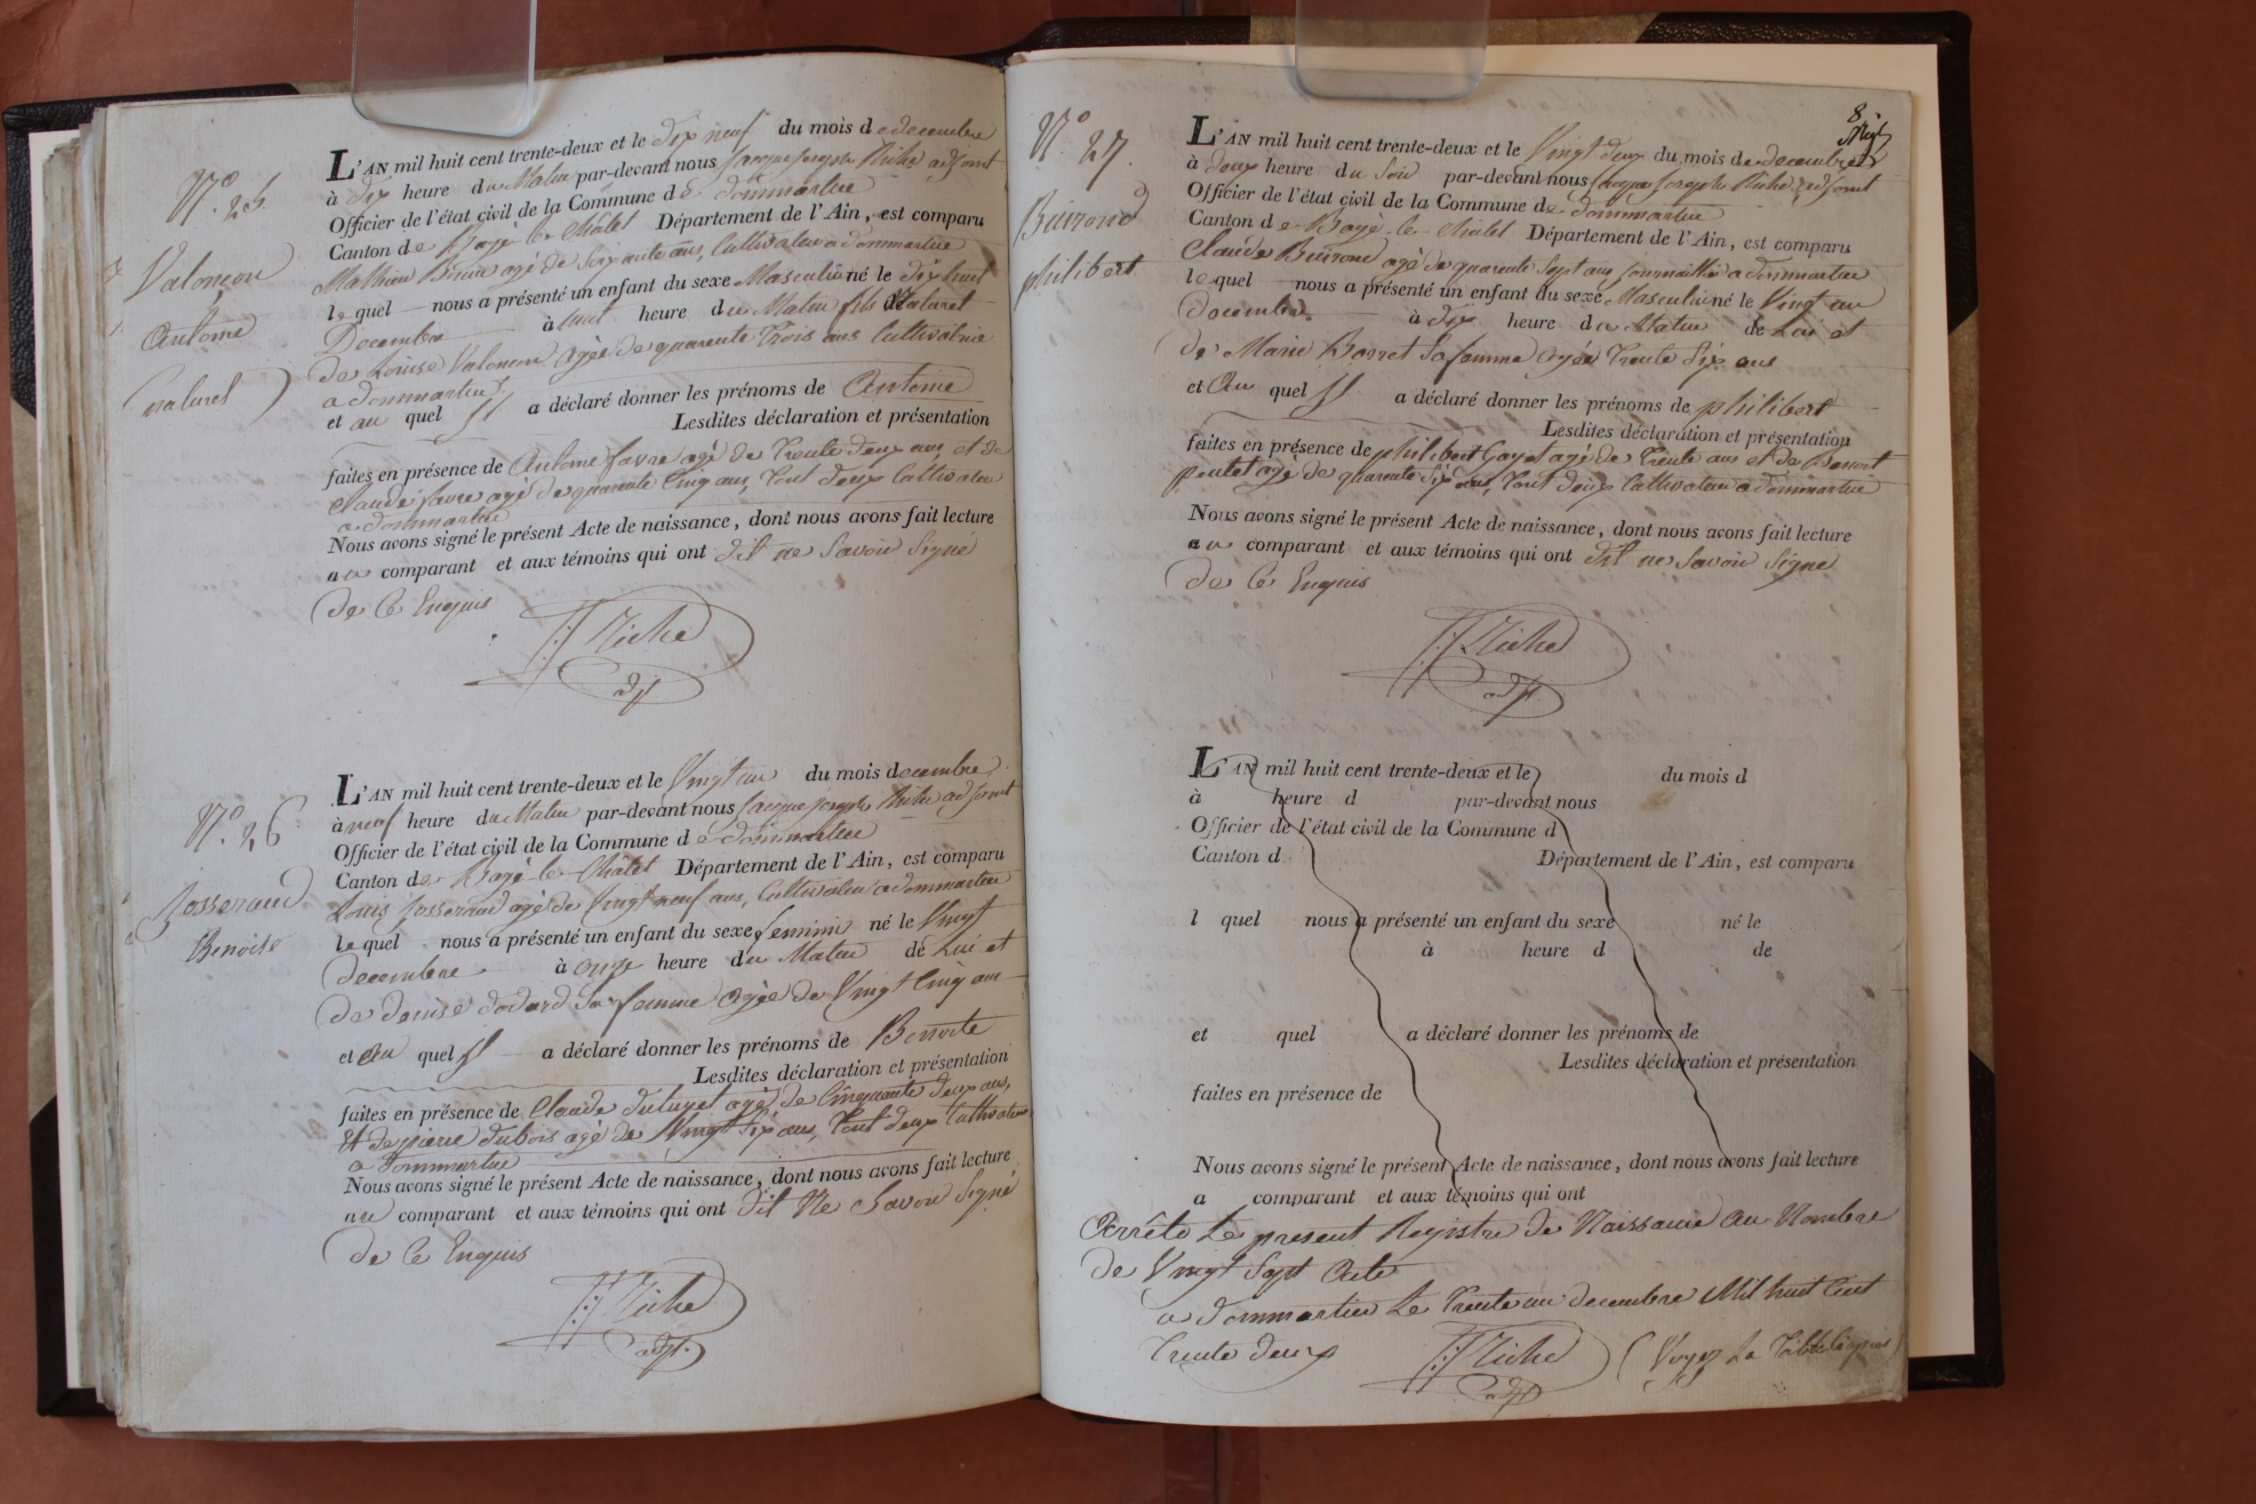 N.° 25.
Valonçon
Antoine
(naturel)
L'AN mil huit cent trente-deux et le dix neuf du mois de decembre
à dix heure du Matin par-devant nous jacque joseph Miche adjoint
Officier de l'état civil de la Commune de dommartin
Canton de Bagé le Châtel Département de l'Ain, est comparu
Mathieu agé de Soixante ans, Cultivateur a dommartin
lequel nous a présenté un enfant du sexe Masculin né le dix huit
Decembre à huit heure du Matin fils Naturel
de Louise Valoncon agée de quarente trois ans Cultivatrice
a dommartin
et au quel il a déclaré donner les prénoms de Antoine
Lesdites déclaration et présentation
faites en présence de Antoine favre agé de trente deux ans et de
Claude favre agé de quarente Cinq ans, tout deux Cultivateur
a dommartin
Nous avons signé le présent Acte de naissance, dont nous avons fait lecture
au comparant et aux témoins qui ont dit ne Savoir Signé
de Ce Enquis
JJ Miche
adjt
N.° 26
Josserand
Benoite
L'AN mil huit cent trente-deux et le Vingt un du mois decembre
à neuf heure du Matin par-devant nous jacque joseph Miche adjoint
Officier de l'état civil de la Commune de dommartin
Canton de Bagé le Châtel Département de l'Ain, est comparu
Louis Josserand agé de Vingt neuf ans, Cultivateur a dommartin
lequel nous a présenté un enfant du sexe feminin né le Vingt
decembre à onze heure du Matin de Lui et
de denise dodard Sa femme agée de Vingt Cinq ans
et au quel il a déclaré donner les prénoms de Benoite
Lesdites déclaration et présentation
faites en présence de Claude duluyet agé de Cinquante deux ans,
Et de pierre dubois agé de Vingt Six ans, tout deux Cultivateur
a dommartin
Nous avons signé le présent Acte de naissance, dont nous avons fait lecture
au comparant et aux témoins qui ont dit Ne Savoir Signé
de Ce Enquis
JJ Miche
adjt.
8
N.° 27.
Buirond
philibert
L'AN mil huit cent trente-deux et le Vingt deux du mois de decembre
à deux heure du Soir par-devant nous jacque joseph Miche adjoint
Officier de l'état civil de la Commune de dommartin
Canton de Bagé le Châtel Département de l'Ain, est comparu
Claude Buirond agé de quarente Sept ans journaillier a dommartin
lequel nous a présenté un enfant du sexe Masculin né le Vingt un
decembre à dix heure du Matin de Lui et
de Marie Barret Sa femme agée trente Six ans
et au quel il a déclaré donner les prénoms de philibert
Lesdites déclaration et présentation
faites en présence de philibert Gayet agé de trente ans et de Benoit
poutet agé de quarente Six ans, tout deux Cultivateur a dommartin
Nous avons signé le présent Acte de naissance, dont nous avons fait lecture
au comparant et aux témoins qui ont dit ne Savoir Signé
de Ce Enquis
JJ Miche
adjt
L'AN mil huit cent trente-deux et le du mois d
à heure d par-devant nous
Officier de l'état civil de la Commune d
Canton d Département de l'Ain, est comparu
l quel nous a présenté un enfant du sexe né le
à heure d de
et quel a déclaré donner les prénoms de
Lesdites déclaration et présentation
faites en présence de
Nous avons signé le présent Acte de naissance, dont nous avons fait lecture
a comparant et aux témoins qui ont
Arrêté Le present Registre de Naissance au Nombre
de Vingt Sept Acte
a dommartin Le trente un decembre Mil huit Cent
trente deux JJ Miche (Voyez La Table Ci après)
adjt